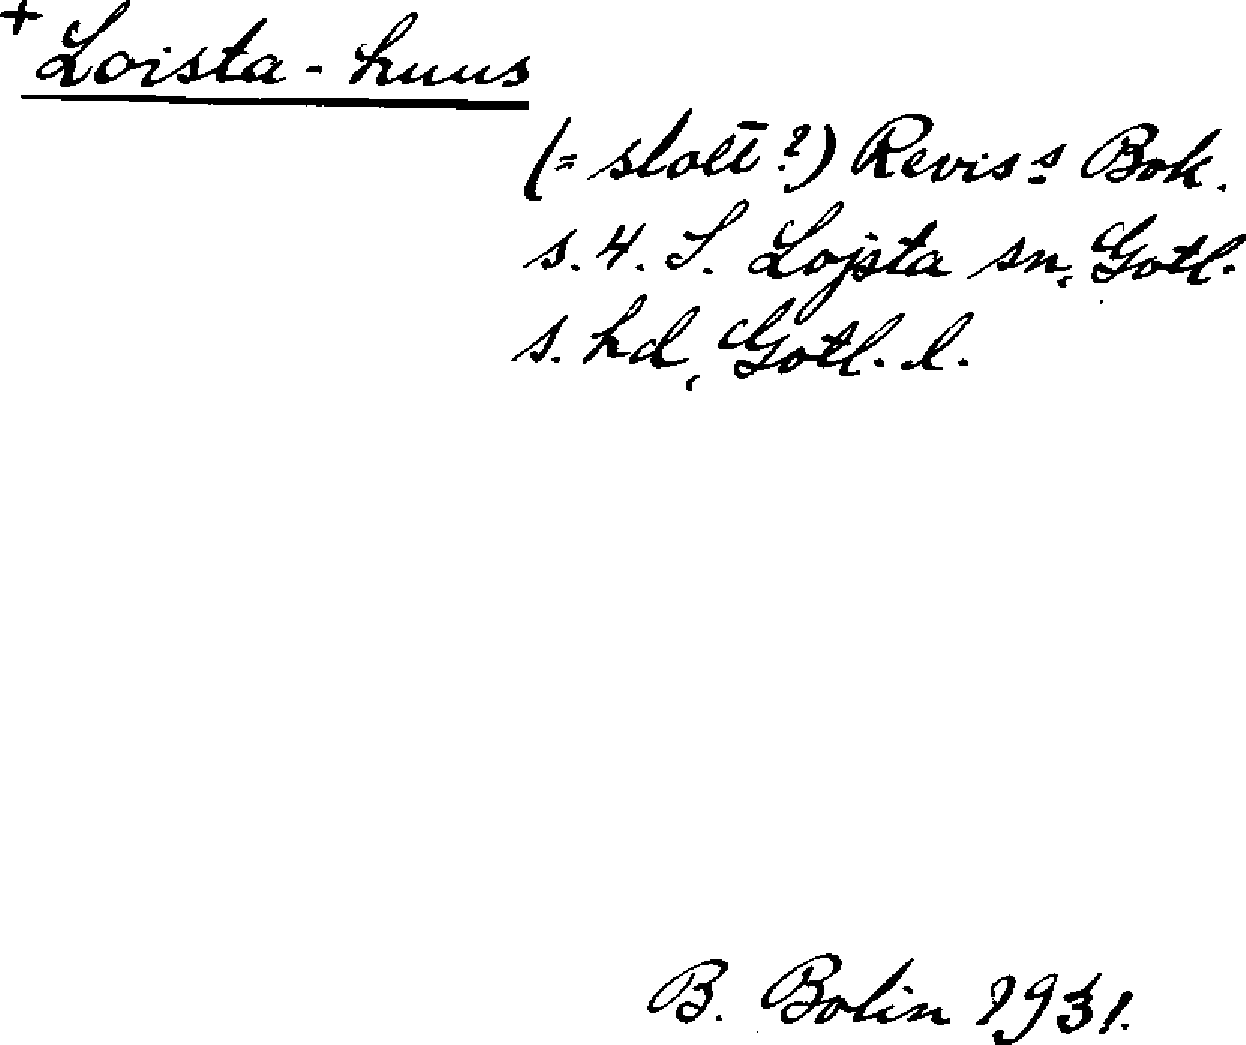 + Loista-huus
(= slott?) Revis:s Bok.
s. 4. S. Lojsta sn, Gotl.
s. hd, Gotl. l.
B. Bolin 1931.